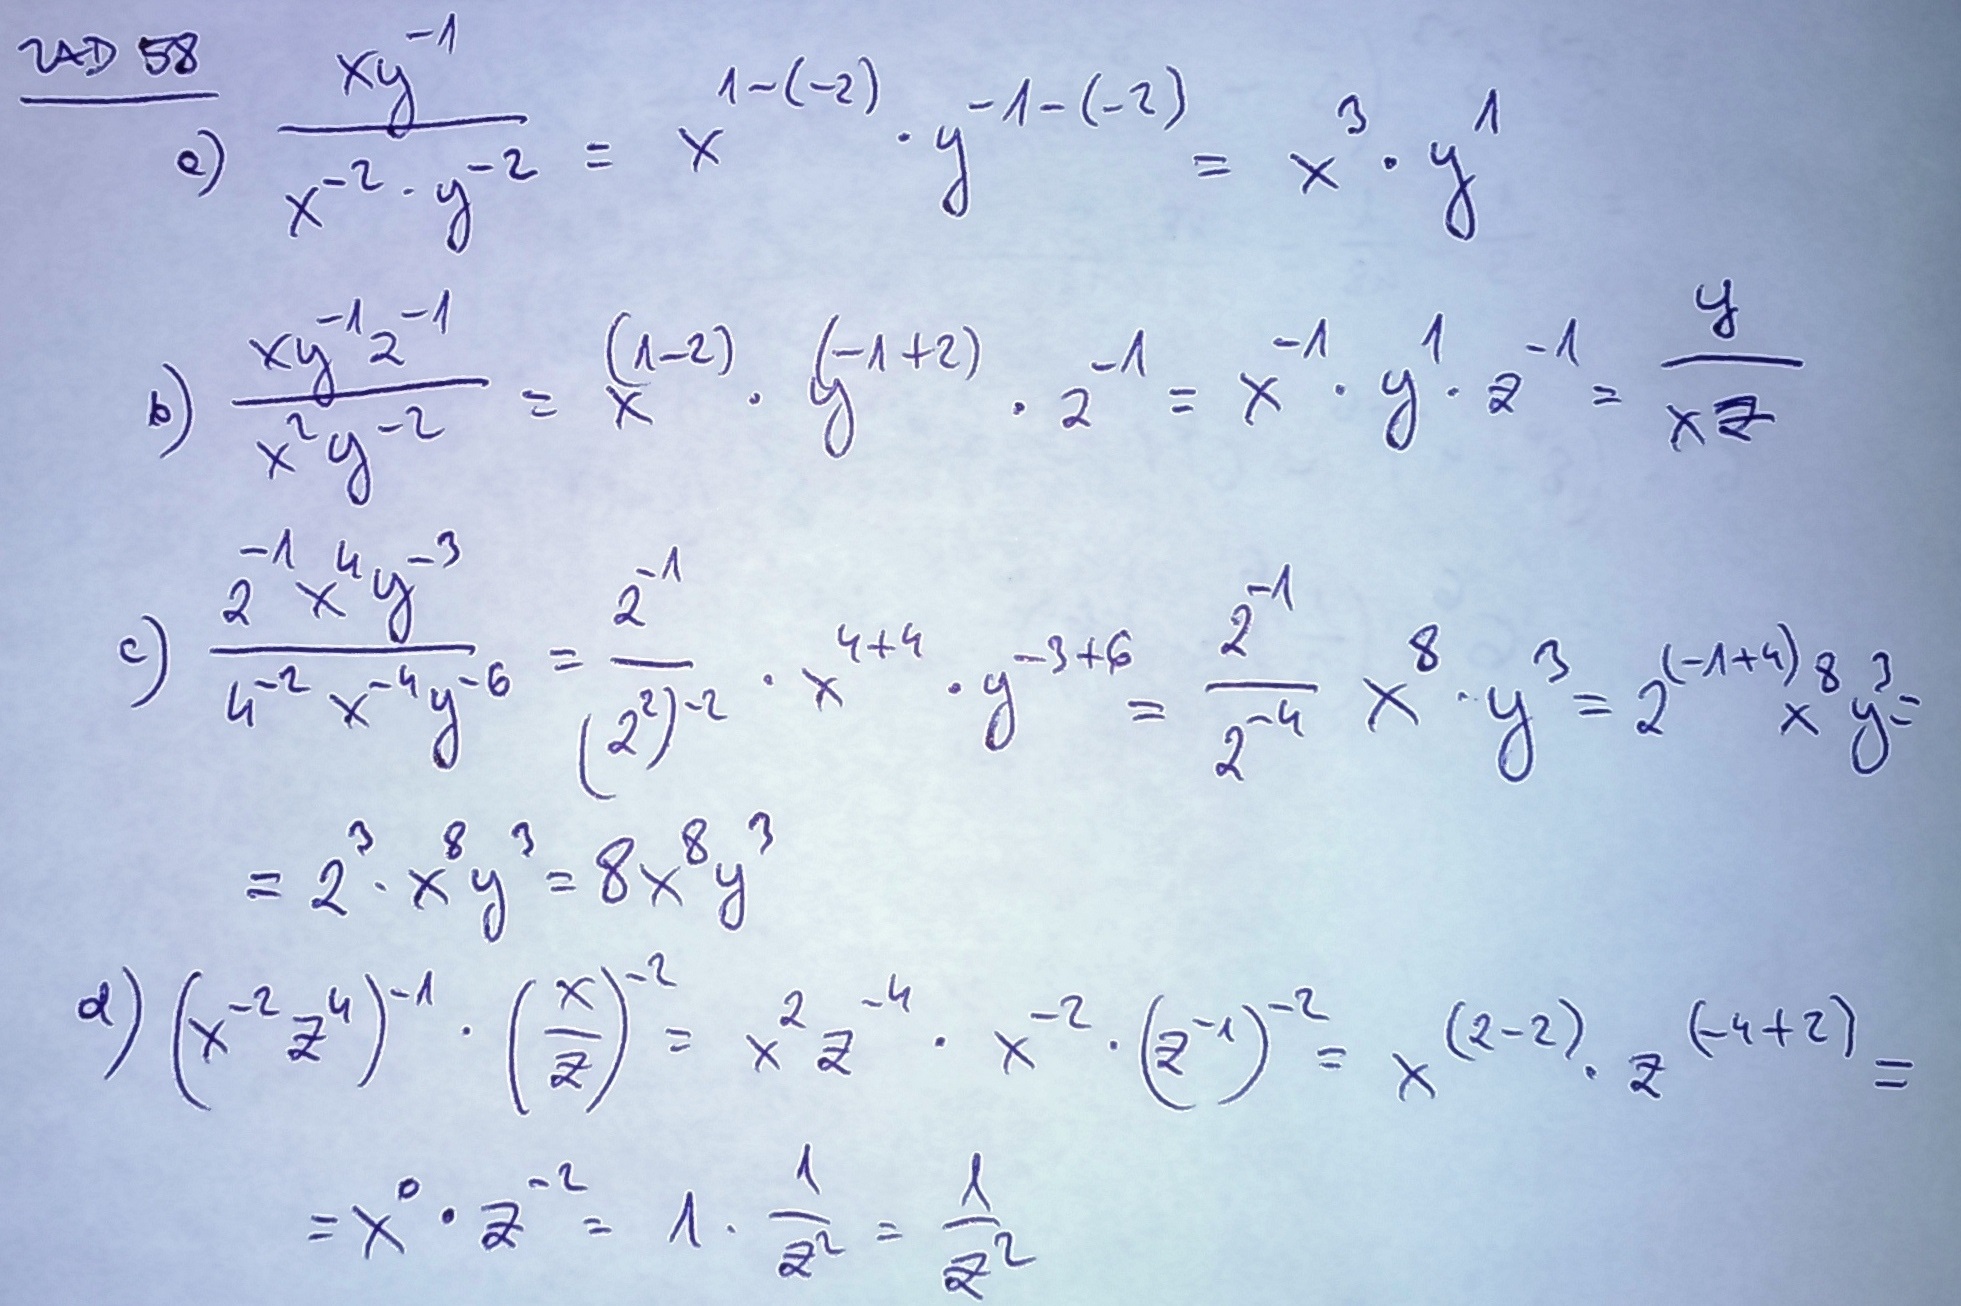 ZAD 58
a) \frac{xy^{-1}}{x^{-2} \cdot y^{-2}} = x^{1-(-2)} \cdot y^{-1-(-2)} = x^3 \cdot y^1
b) \frac{xy^{-1}z^{-1}}{x^2y^{-2}} = x^{(1-2)} \cdot y^{(-1+2)} \cdot z^{-1} = x^{-1} \cdot y^1 \cdot z^{-1} = \frac{y}{xz}
c) \frac{2^{-1}x^4y^{-3}}{4^{-2}x^{-4}y^{-6}} = \frac{2^{-1}}{(2^2)^{-2}} \cdot x^{4+4} \cdot y^{-3+6} = \frac{2^{-1}}{2^{-4}} x^8 \cdot y^3 = 2^{(-1+4)} x^8 y^3 =
= 2^3 \cdot x^8y^3 = 8x^8y^3
d) (x^{-2}z^4)^{-1} \cdot (\frac{x}{z})^{-2} = x^2z^{-4} \cdot x^{-2} \cdot (z^{-1})^{-2} = x^{(2-2)} \cdot z^{(-4+2)} =
= x^0 \cdot z^{-2} = 1 \cdot \frac{1}{z^2} = \frac{1}{z^2}